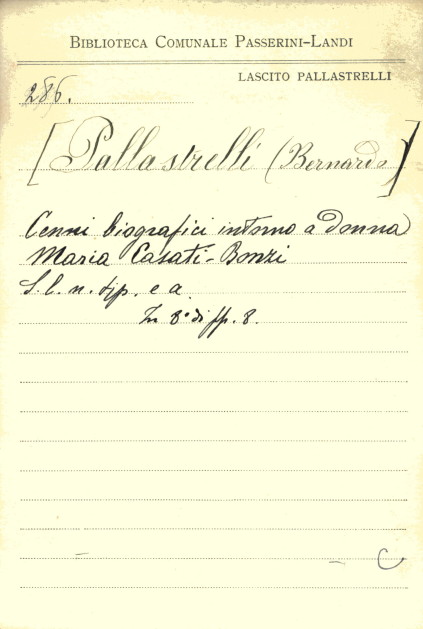 BIBLIOTECA COMUNALE PASSERINI-LANDI
LASCITO PALLASTRELLI
286.
[Pallastrelli (Bernardo)]
Cenni biografici intorno a donna
Maria Casati-Bonzi
S. l. n. tip. e a.
In 8° di pp. 8.
C